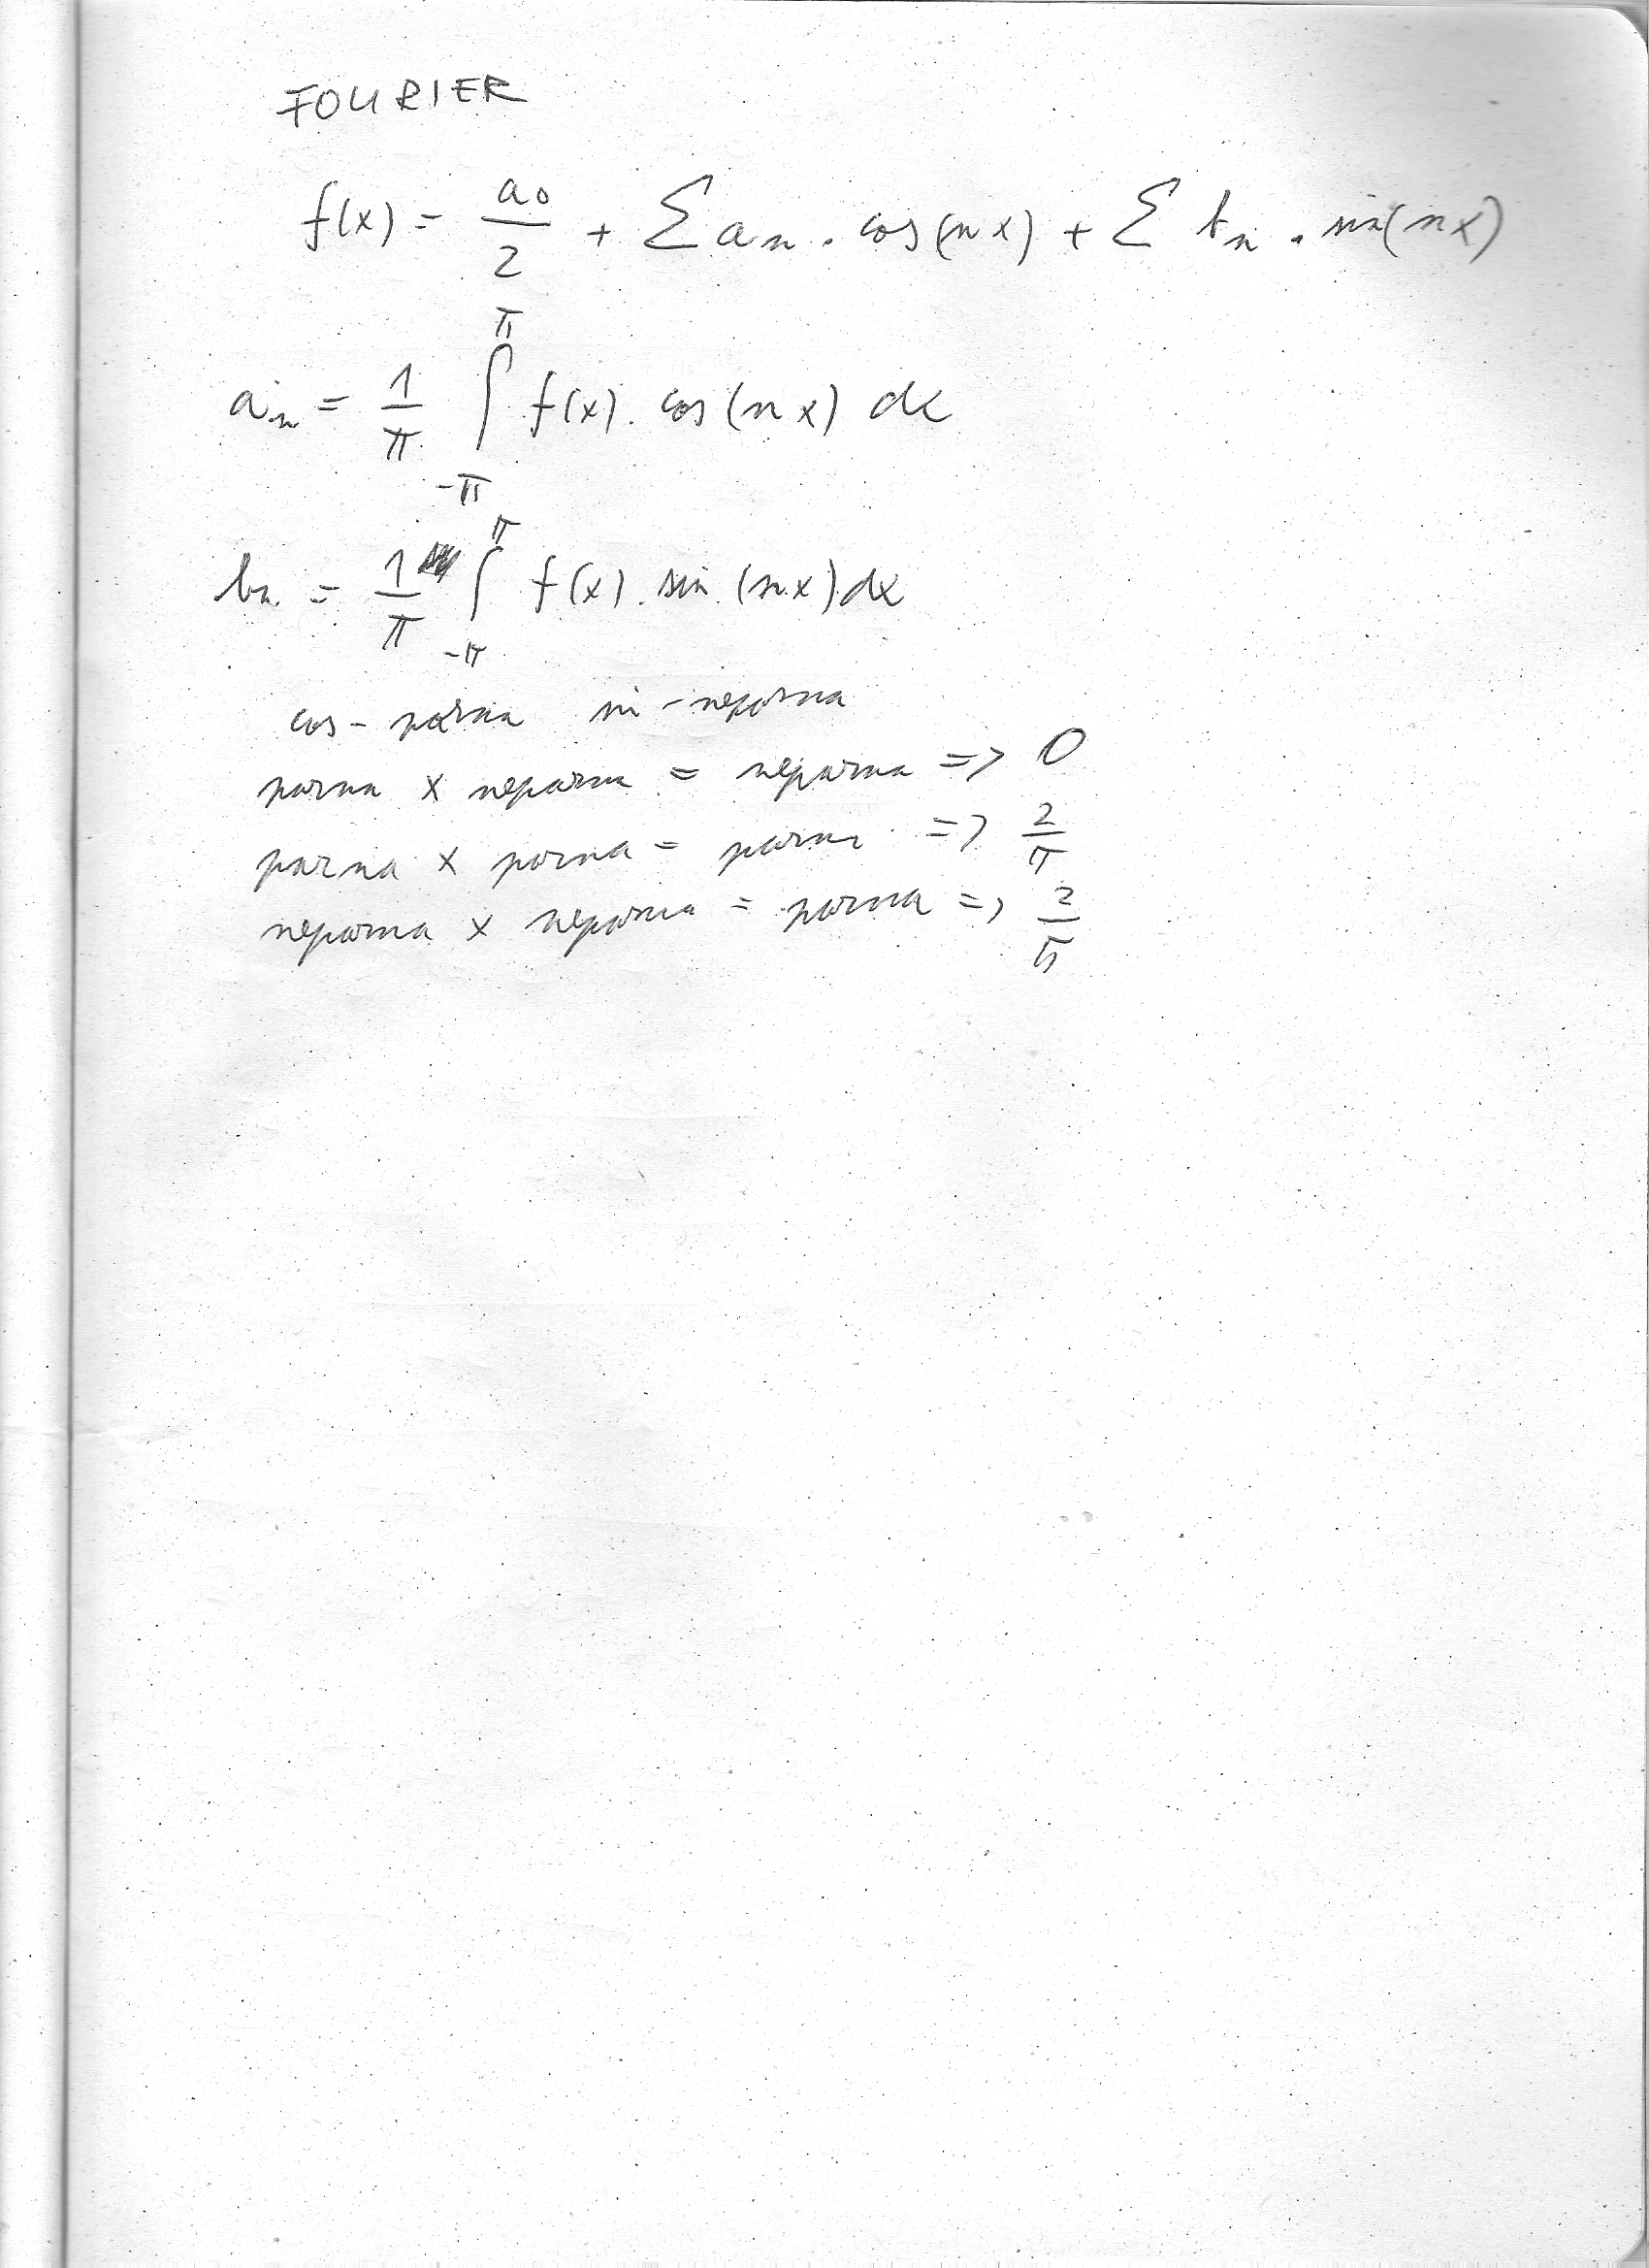 FOURIER
f(x) = a₀/2 + Σ aₙ . cos(nx) + Σ bₙ . sin(nx)
aₙ = 1/π ∫_{-π}^{π} f(x) . cos(nx) dx
bₙ = 1/π ∫_{-π}^{π} f(x) . sin(nx) dx
cos - parna sin - neparna
parna x neparna = neparna => 0
parna x parna = parna => 2/π
neparna x neparna = parna => 2/π